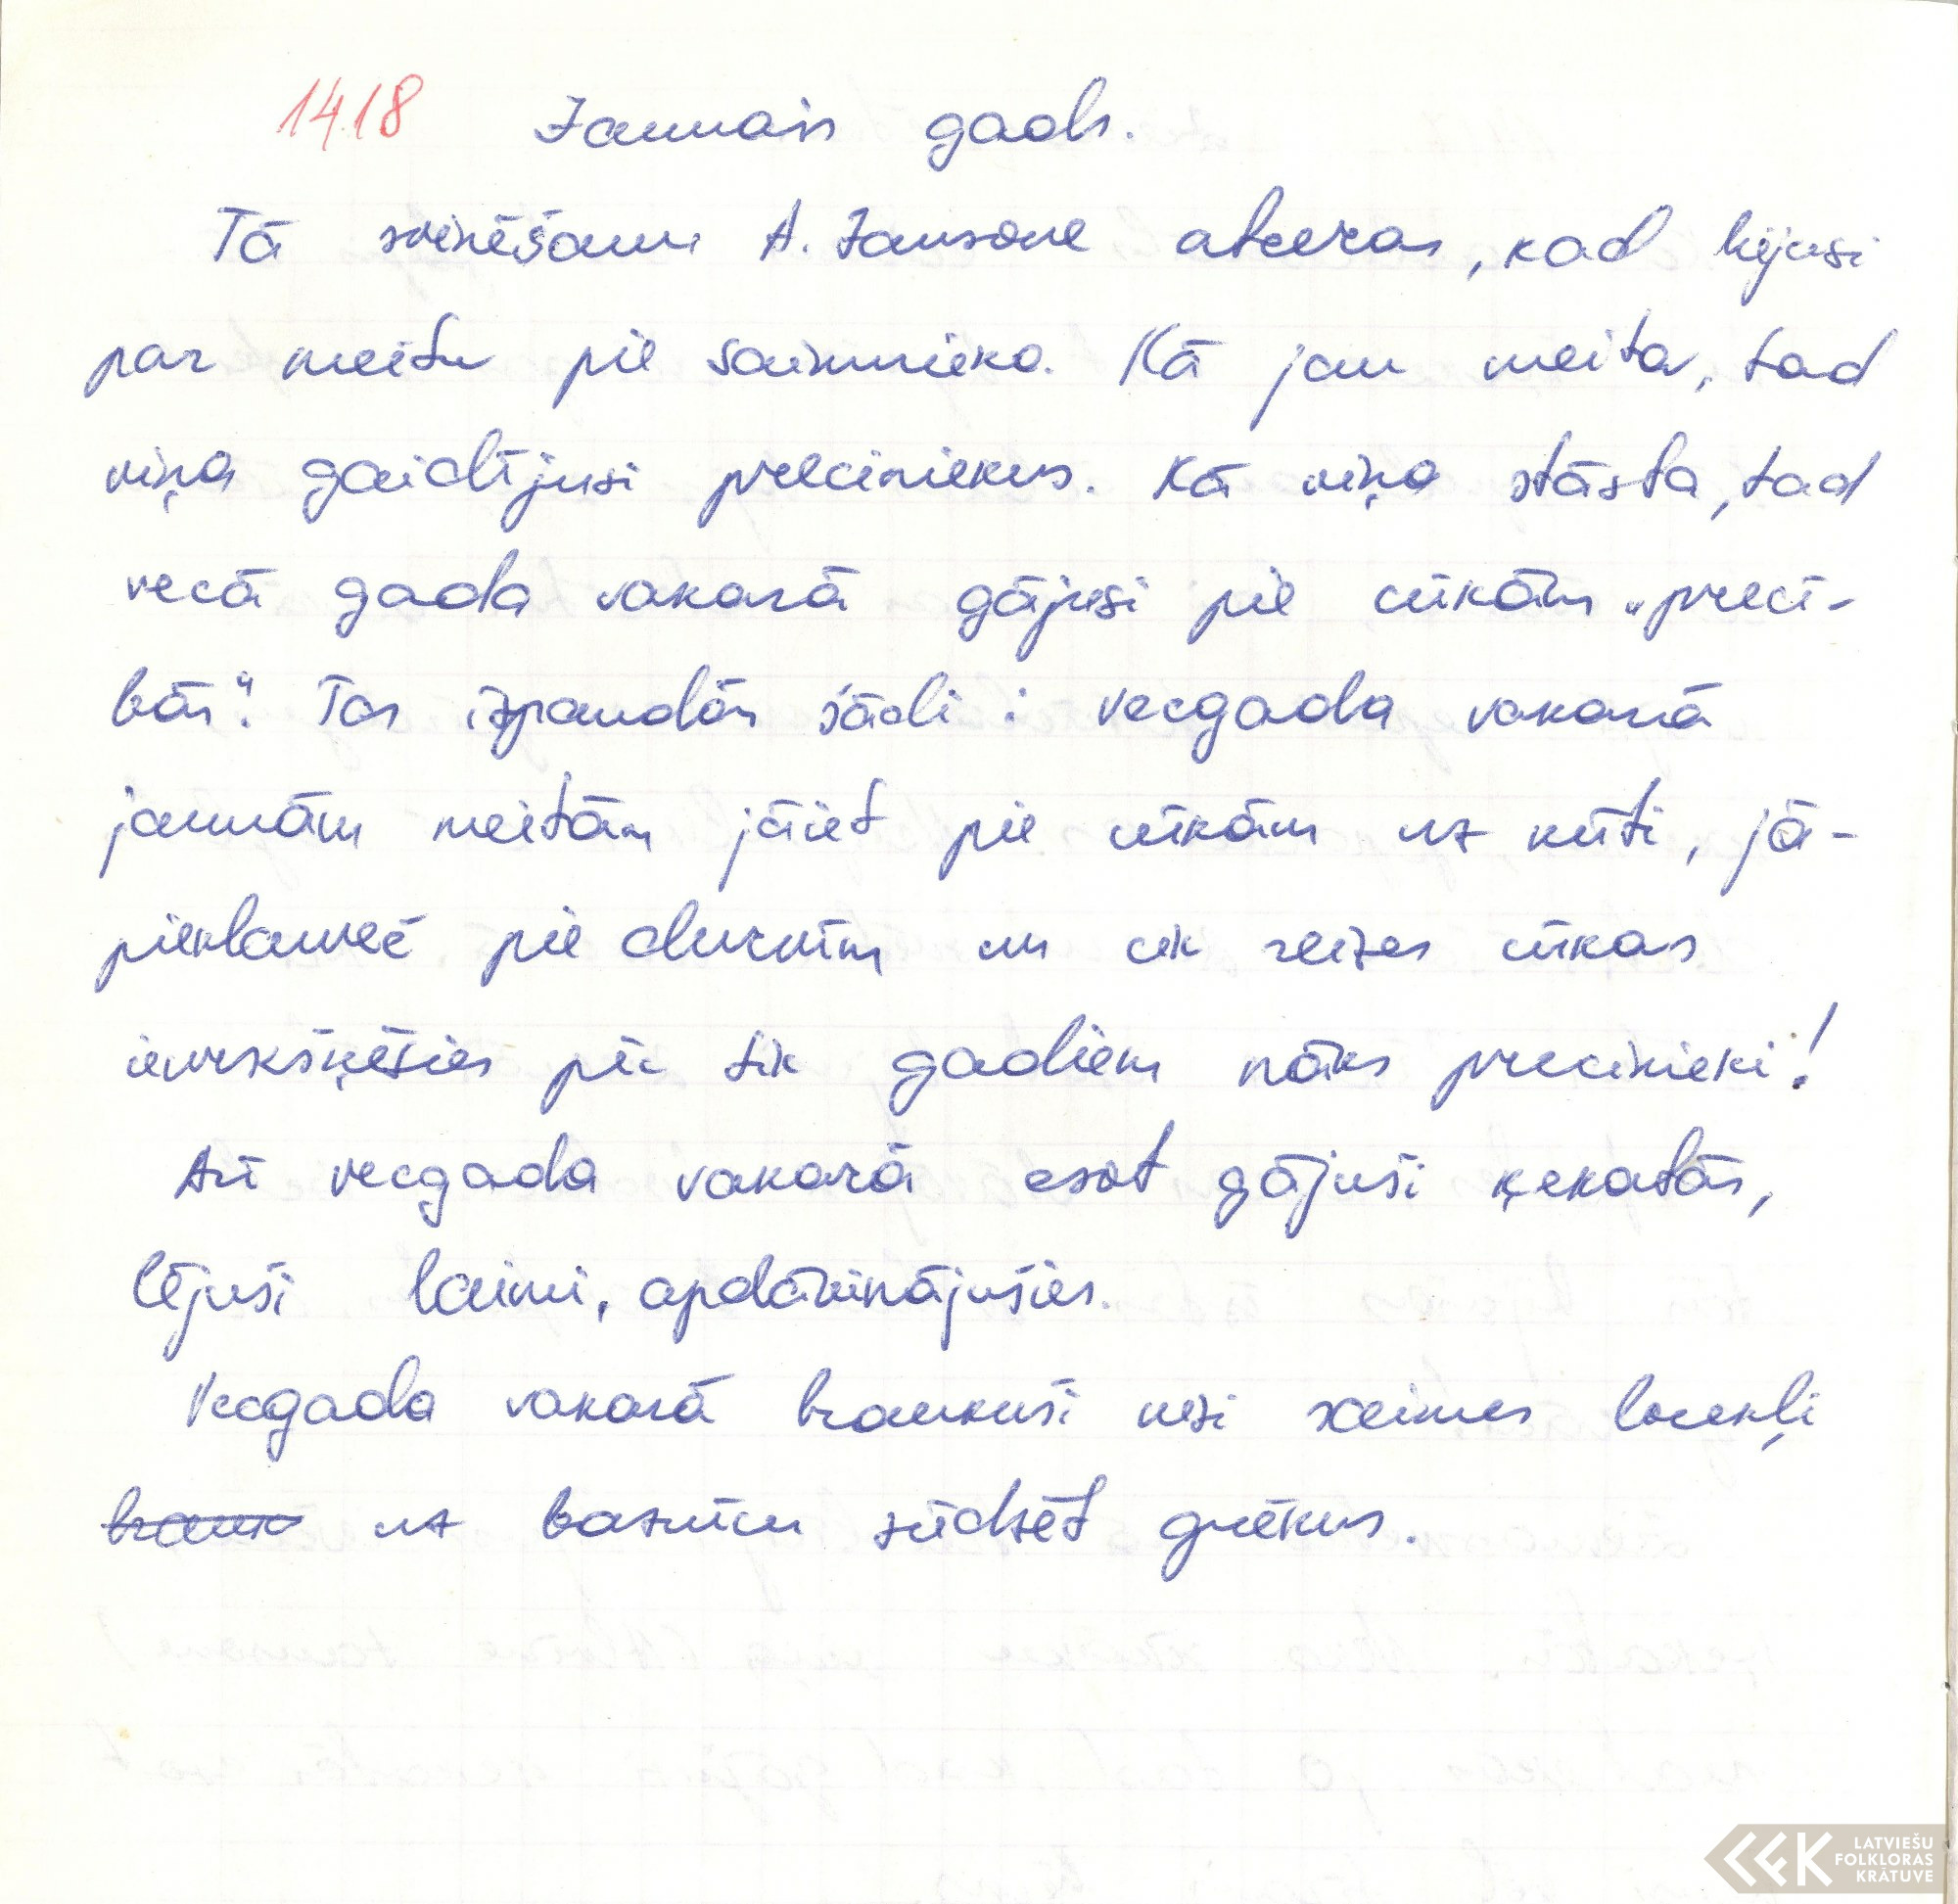 1418 Jaunais gads.
Tā svinēšanu A. Jansone atceras, kad bijusi
par meitu pie saimnieka. Kā jau meita, tad
viņa gaidījusi preciniekus. Kā viņa stāsta, tad
vecā gada vakarā gājusi pie cūkām "precī-
bās". Tas izpaudās šādi: vecgada vakarā
jaunām meitām jāiet pie cūkām uz kūti, jā-
pieklauvē pie durvīm un cik reizes cūkas
ieurkšķēsies pēc tik gadiem nāks precinieki!
Arī vecgada vakarā esot gājuši ķekatās,
lējuši laimi, apdāvinājušies.
Vecgada vakarā braukuši visi saimes locekļi
brauku uz baznīcu sūdzēt grēkus.
LATVIEŠU
FOLKLORAS
KRĀTUVE